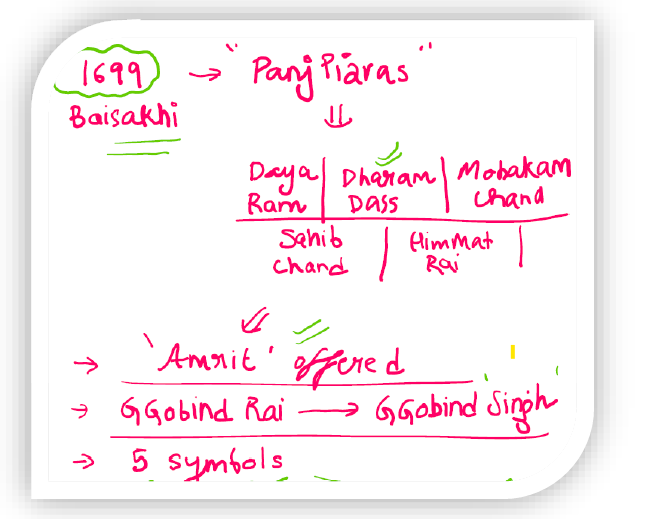 1699 → "Panj Piaras"
Baisakhi
⇓
Daya Ram | Dharam Dass | Mohakam Chand
Sahib Chand | Himmat Rai |
→ 'Amrit' offered
→ GGobind Rai → GGobind 'Singh'
→ 5 symbols